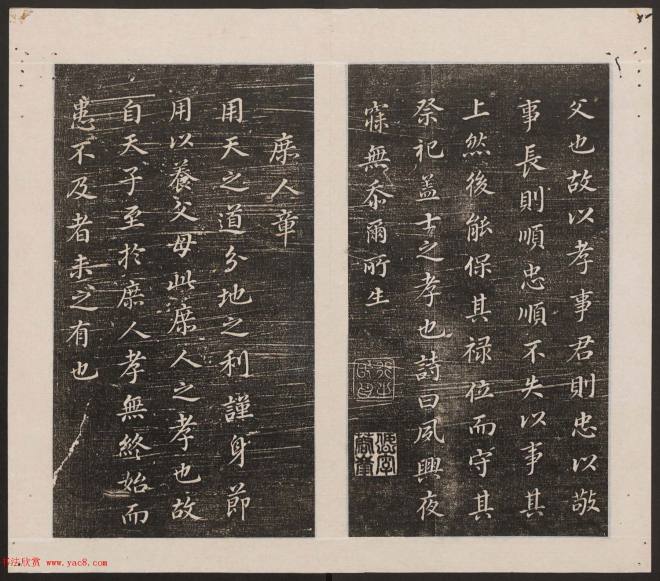 父也故以孝事君則忠以敬
事長則順忠順不失以事其
上然後能保其禄位而守其
祭祀盖士之孝也詩曰夙興夜
寐無忝爾所生
庶人章
用天之道分地之利謹身節
用以養父母此庶人之孝也故
自天子至於庶人孝無終始而
患不及者未之有也
书法欣赏 www.yac8.com